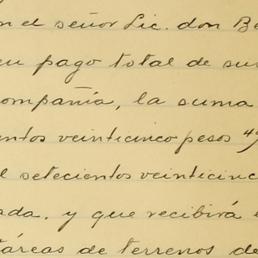 n el señor Lic. don Be
en pago total de su
ompañía, la suma
entos veinticinco pesos 4
l setecientos veinticinc
ada. y que recibirá
táreas de terrenos de